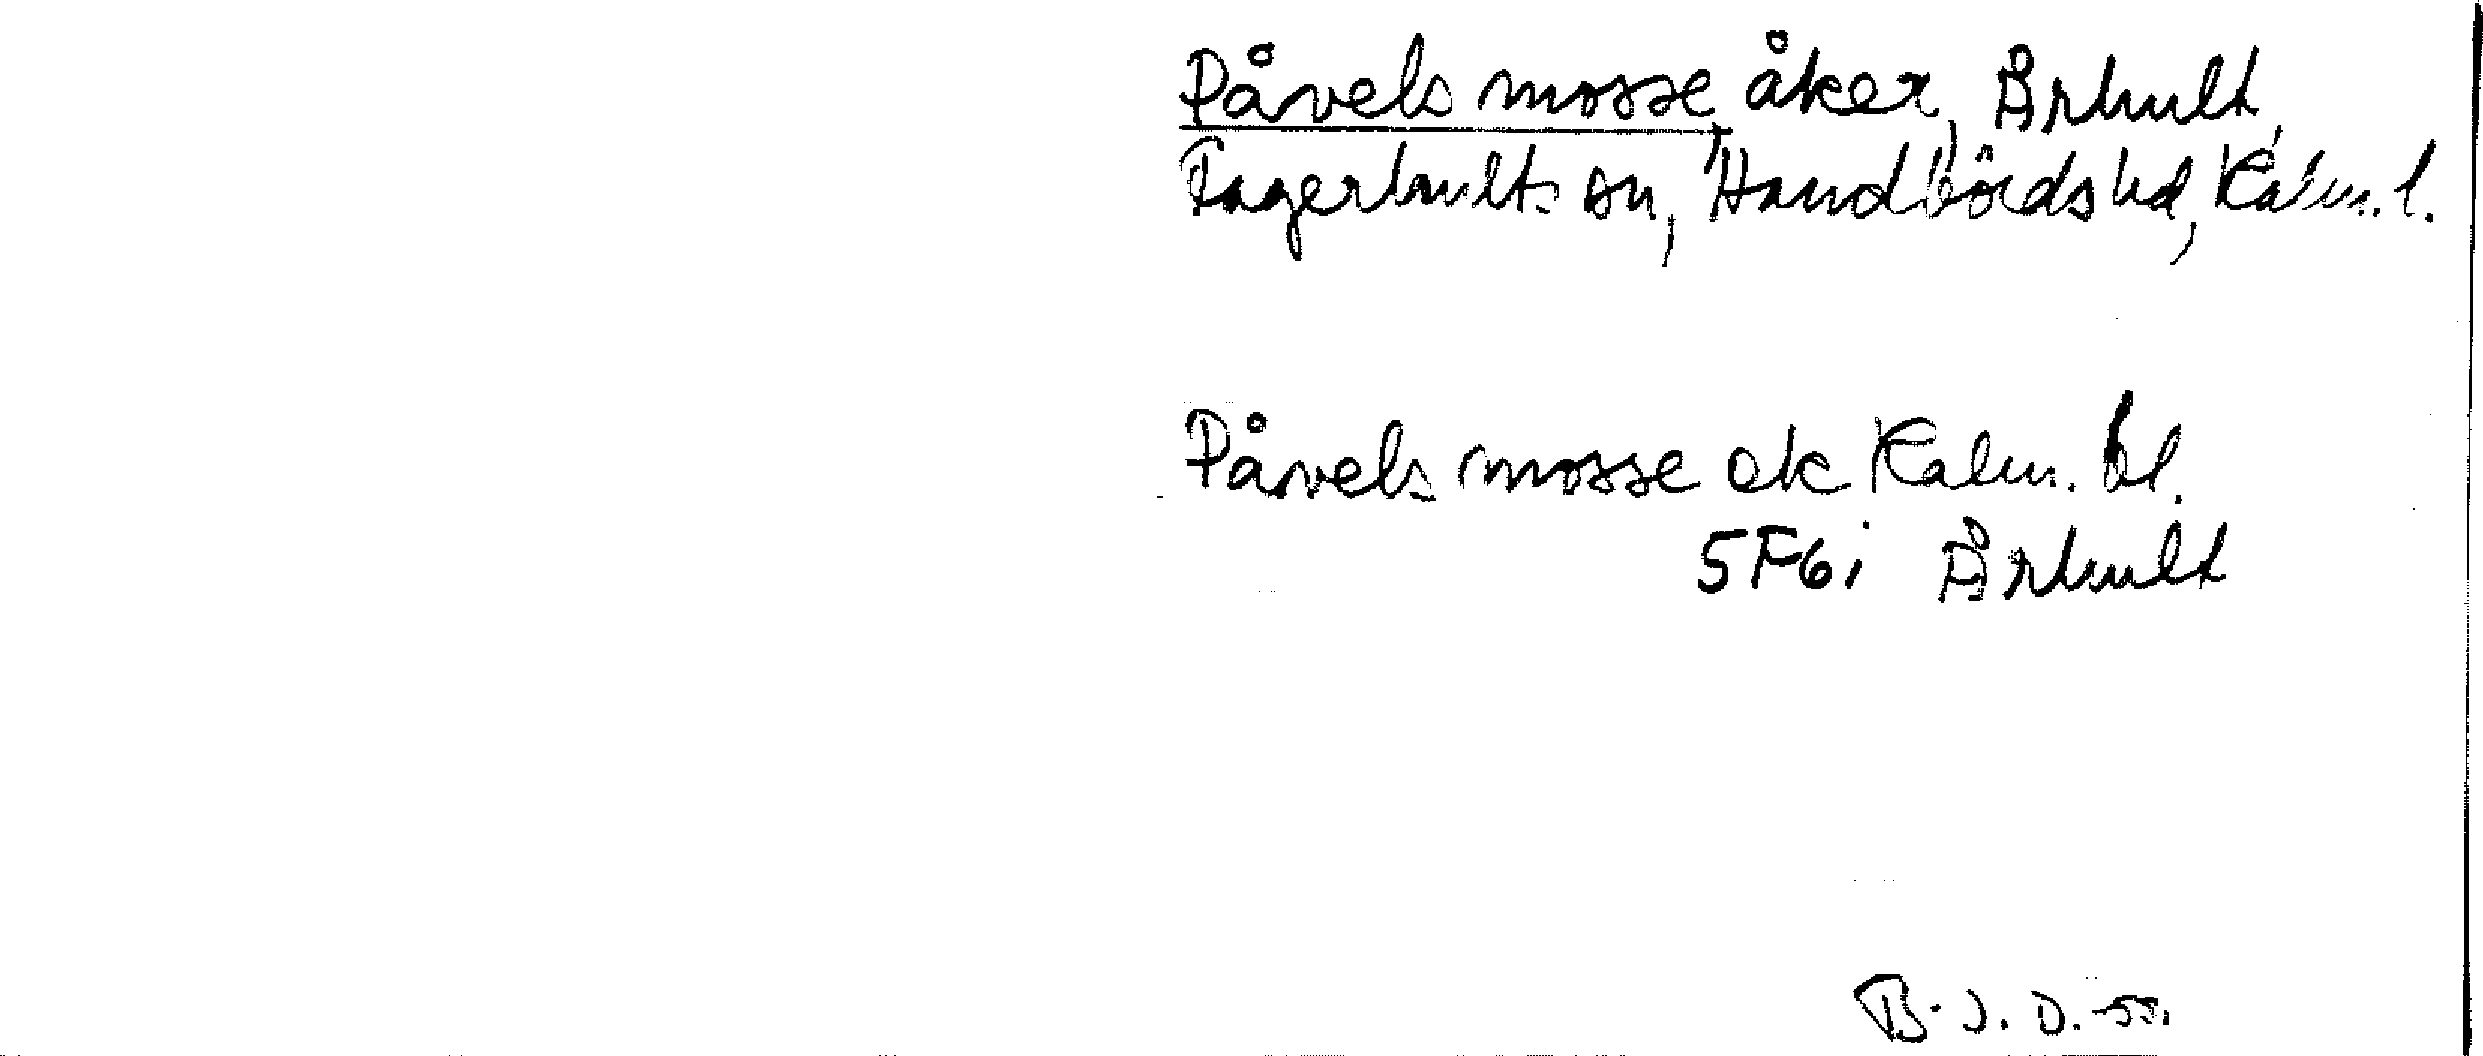 Påvels mosse, åker, Århult,
Fagerhults sn, Handbörds hd, Kalm. l.
Påvels mosse ek Kalm. bl.
5F6i Århult
B.J.D. -55.